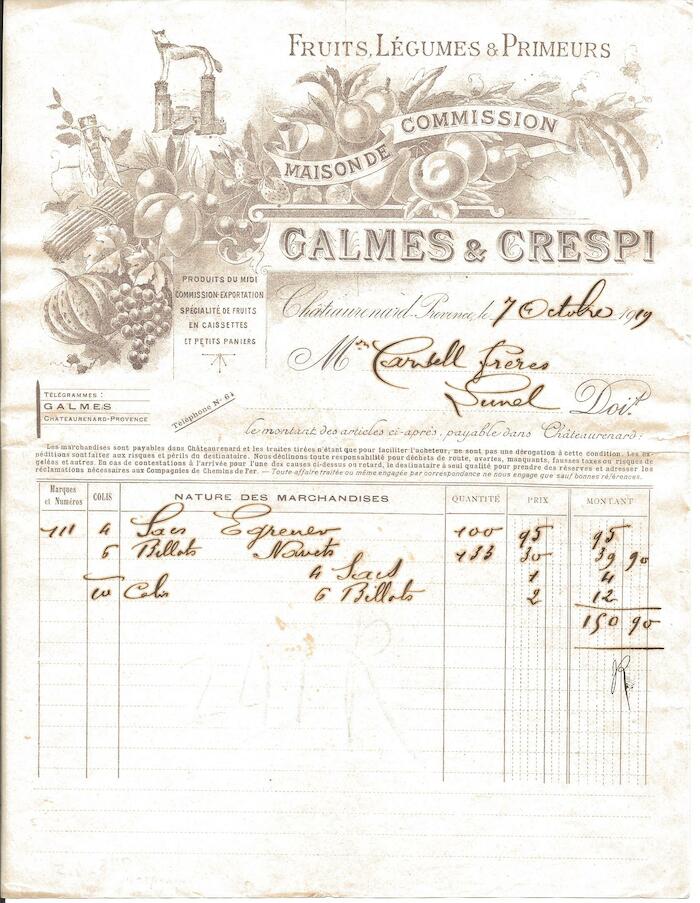 FRUITS, LÉGUMES & PRIMEURS
MAISON DE COMMISSION
GALMES & CRESPI
PRODUITS DU MIDI
COMMISSION-EXPORTATION
SPÉCIALITÉ DE FRUITS
EN CAISSETTES
ET PETITS PANIERS
Châteaurenard-Provence, le 7 Octobre 1919
M
frères
Lunel Doit
TÉLÉGRAMMES :
GALMES
CHATEAURENARD-PROVENCE
Téléphone N° 61
le montant des articles ci-après, payable dans Châteaurenard:
Les marchandises sont payables dans Châteaurenard et les traites tirées n'étant que pour faciliter l'acheteur, ne sont pas une dérogation à cette condition. Les ex-
péditions sont faites aux risques et périls du destinataire. Nous déclinons toute responsabilité pour déchets de route, avaries, manquants, fausses taxes ou risques de
gelées et autres. En cas de contestations à l'arrivée pour l'une des causes ci-dessus ou retard, le destinataire a seul qualité pour prendre des réserves et adresser les
réclamations nécessaires aux Compagnies de Chemins de Fer. — Toute affaire traitée ou même engagée par correspondance ne nous engage que sauf bonnes références.
Marques et Numéros COLIS NATURE DES MARCHANDISES QUANTITÉ PRIX MONTANT
4 Sacs 100 95 95
6 Billots Navets 133 30 39 90
4 Sacs 1 4
10 Colis 6 Billots 2 12
150 90